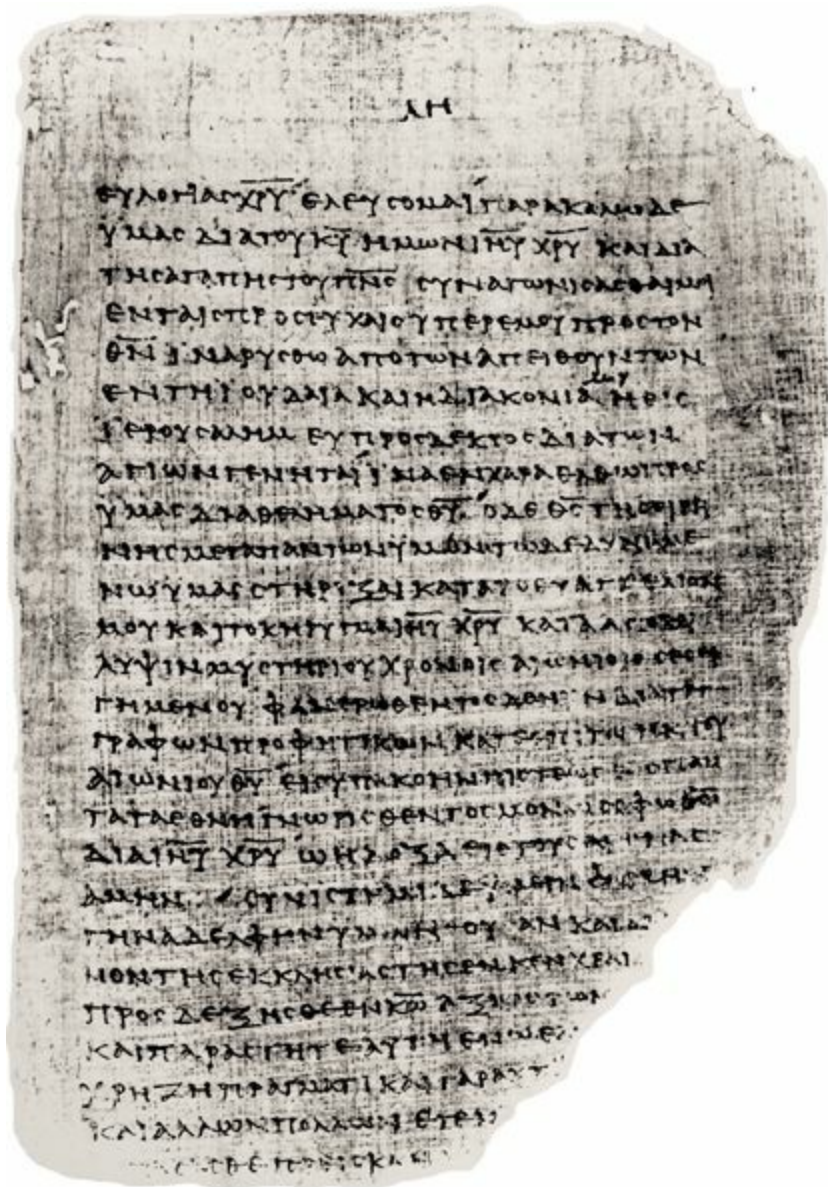 ΛΗ
ΕΥΛΟΓΙΑΣ ΧΡΥ ΕΛΕΥΣΟΜΑΙ ΠΑΡΑΚΑΛΩ ΔΕ
ΥΜΑΣ ΔΙΑ ΤΟΥ ΚΥ ΗΜΩΝ ΙΗΥ ΧΡΥ ΚΑΙ ΔΙΑ
ΤΗΣ ΑΓΑΠΗΣ ΤΟΥ ΠΝΣ ΣΥΝΑΓΩΝΙΣΑΣΘΑΙ ΜΟΙ
ΕΝ ΤΑΙΣ ΠΡΟΣΕΥΧΑΙΣ ΥΠΕΡ ΕΜΟΥ ΠΡΟΣ ΤΟΝ
ΘΝ ΙΝΑ ΡΥΣΘΩ ΑΠΟ ΤΩΝ ΑΠΕΙΘΟΥΝΤΩΝ
ΕΝ ΤΗ ΙΟΥΔΑΙΑ ΚΑΙ Η ΔΙΑΚΟΝΙΑ ΜΟΥ Η ΕΙΣ
ΙΕΡΟΥΣΑΛΗΜ ΕΥΠΡΟΣΔΕΚΤΟΣ ΔΙΑ ΤΩΝ
ΑΓΙΩΝ ΓΕΝΗΤΑΙ ΙΝΑ ΕΝ ΧΑΡΑ ΕΛΘΩ ΠΡΟΣ
ΥΜΑΣ ΔΙΑ ΘΕΛΗΜΑΤΟΣ ΘΥ Ο ΔΕ ΘΣ ΤΗΣ ΕΙΡΗ
ΝΗΣ ΜΕΤΑ ΠΑΝΤΩΝ ΥΜΩΝ ΤΩ ΔΕ ΔΥΝΑΜΕ
ΝΩ ΥΜΑΣ ΣΤΗΡΙΞΑΙ ΚΑΤΑ ΤΟ ΕΥΑΓΓΕΛΙΟΝ
ΜΟΥ ΚΑΙ ΤΟ ΚΗΡΥΓΜΑ ΙΗΥ ΧΡΥ ΚΑΤΑ ΑΠΟΚΑ
ΛΥΨΙΝ ΜΥΣΤΗΡΙΟΥ ΧΡΟΝΟΙΣ ΑΙΩΝΙΟΙΣ ΣΕΣΕΙ
ΓΗΜΕΝΟΥ ΦΑΝΕΡΩΘΕΝΤΟΣ ΔΕ ΝΥΝ ΔΙΑ ΤΕ
ΓΡΑΦΩΝ ΠΡΟΦΗΤΙΚΩΝ ΚΑΤ ΕΠΙΤΑΓΗΝ ΤΟΥ
ΑΙΩΝΙΟΥ ΘΥ ΕΙΣ ΥΠΑΚΟΗΝ ΠΙΣΤΕΩΣ ΕΙΣ ΠΑΝ
ΤΑ ΤΑ ΕΘΝΗ ΓΝΩΡΙΣΘΕΝΤΟΣ ΜΟΝΩ ΣΟΦΩ ΘΩ
ΔΙΑ ΙΗΥ ΧΡΥ Ω Η ΔΟΞΑ ΕΙΣ ΤΟΥΣ ΑΙΩΝΑΣ
ΑΜΗΝ ΣΥΝΙΣΤΗΜΙ ΔΕ ΥΜΕΙΝ ΦΟΙΒΗΝ
ΤΗΝ ΑΔΕΛΦΗΝ ΥΜΩΝ ΟΥΣΑΝ ΚΑΙ ΔΙΑ
ΚΟΝ ΤΗΣ ΕΚΚΛΗΣΙΑΣ ΤΗΣ ΕΝ ΚΕΝΧΡΕΑΙ
ΠΡΟΣΔΕΞΗΣΘΕ ΕΝ ΚΩ ΑΞΙΩΣ ΤΩΝ
ΚΑΙ ΠΑΡΑΣΤΗΤΕ ΑΥΤΗ ΕΝ Ω Ε
ΧΡΗΖΗ ΠΡΑΓΜΑΤΙ ΚΑΙ ΓΑΡ ΑΥΤ
ΚΑΙ ΑΛΛΩΝ ΠΟΛΛΩΝ ΕΓΕΝ
ΑΣΠΑΣΑΣΘΕ ΠΡΕΙΣΚΑΝ